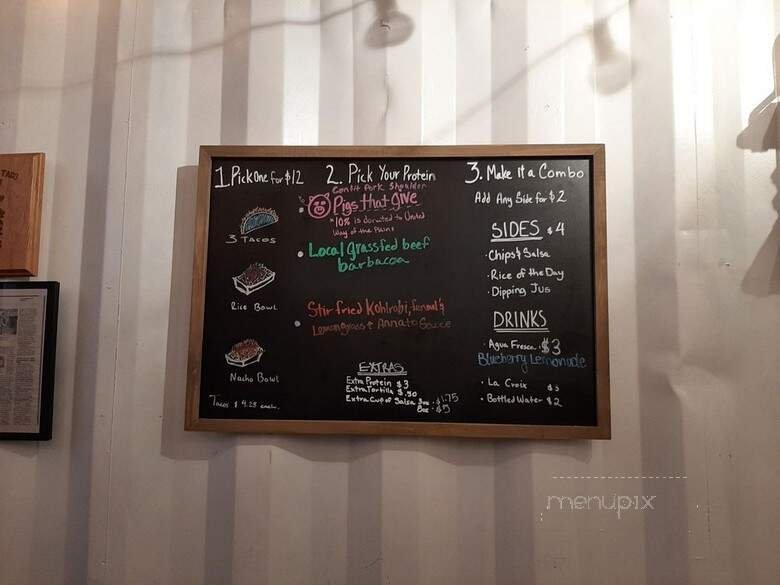 1. Pick One for $12
3 TACOS
Rice Bowl
Nacho Bowl
Tacos $ 4.25 each.
2. Pick Your Protein
Confit Pork Shoulder
Pigs that Give
*10% is donated to United
Way of the Plains
Local Grassfed beef
barbacoa
Stir fried Kohlrabi, fennel &
Lemongrass + Annato Sauce
EXTRAS
Extra Protein $3
Extra Tortilla $.50
Extra Cup of Salsa 3oz - $1.75
8oz - $5
3. Make It a Combo
Add Any Side for $2
SIDES $4
• Chips & Salsa
• Rice of the Day
• Dipping Jus
DRINKS
• Agua Fresca $3
Blueberry Lemonade
• La Croix
• Bottled Water $2
menupix